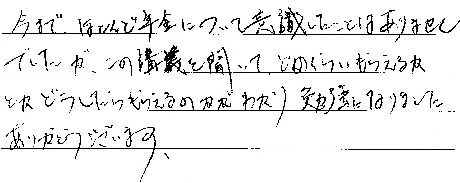 今まで、ほとんど年金について意識したことはありません
でしたが、この講義を聞いて、どのくらいもらえるか
とか どうしたらもらえるのかがわかり 勉強になりました
ありがとうございます、